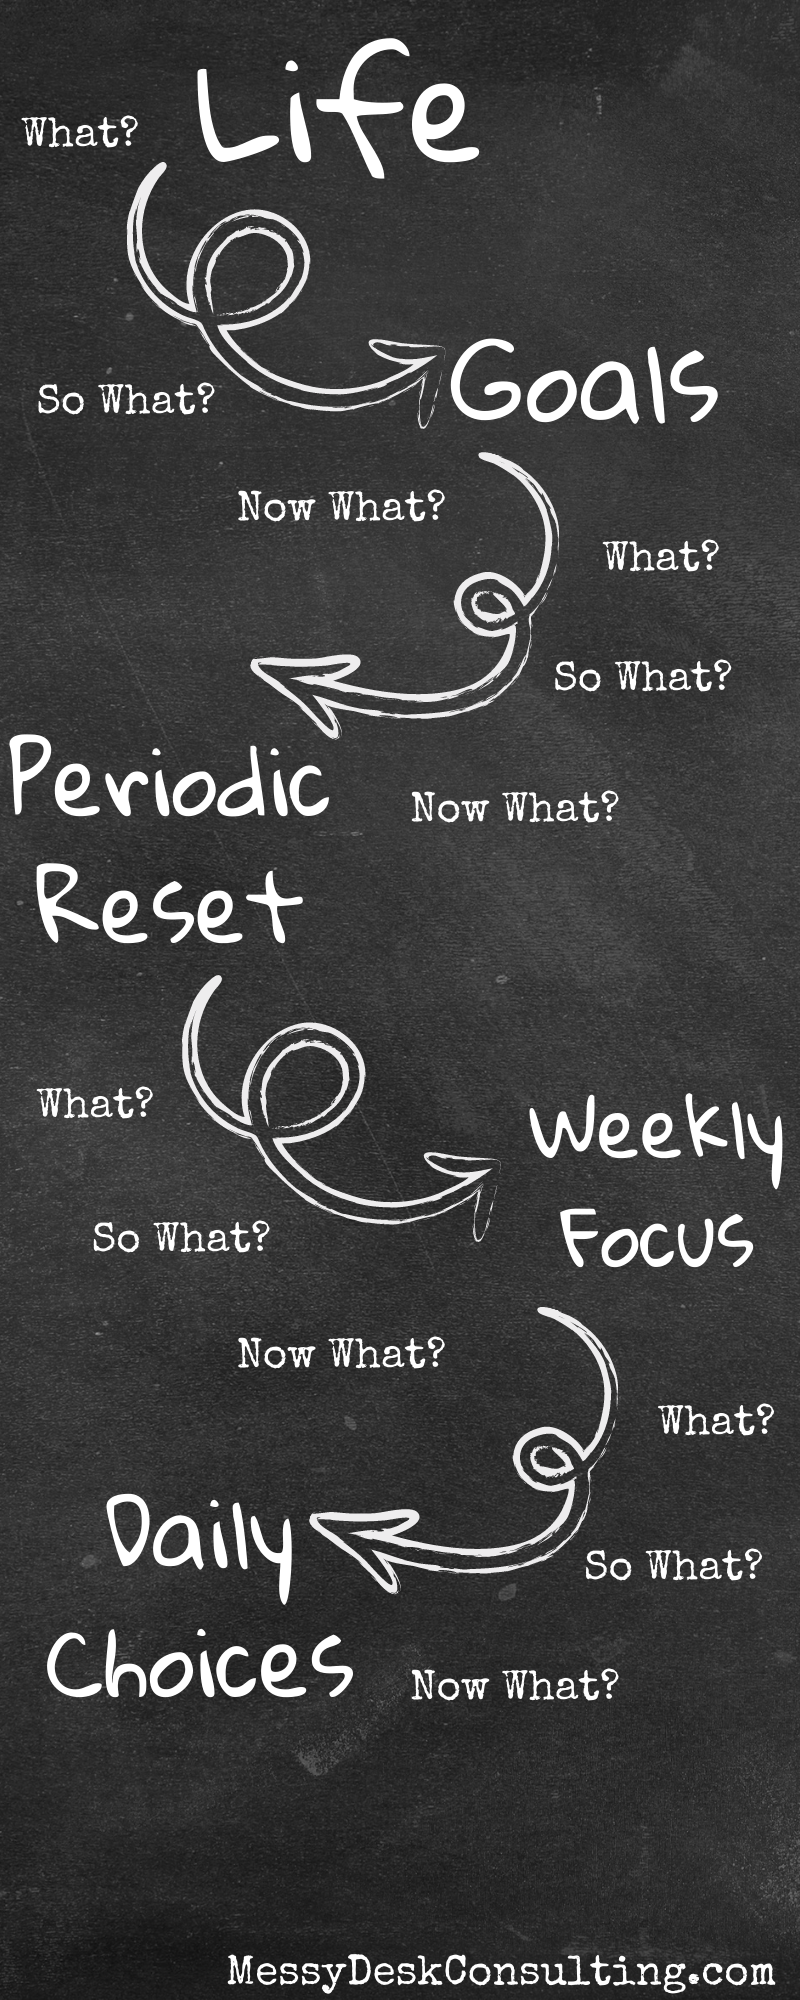 Life
What?
So What?
Goals
Now What?
What?
So What?
Periodic
Now What?
Reset
What?
Weekly
So What?
Focus
Now What?
What?
Daily
So What?
Choices
Now What?
MessyDeskConsulting.com